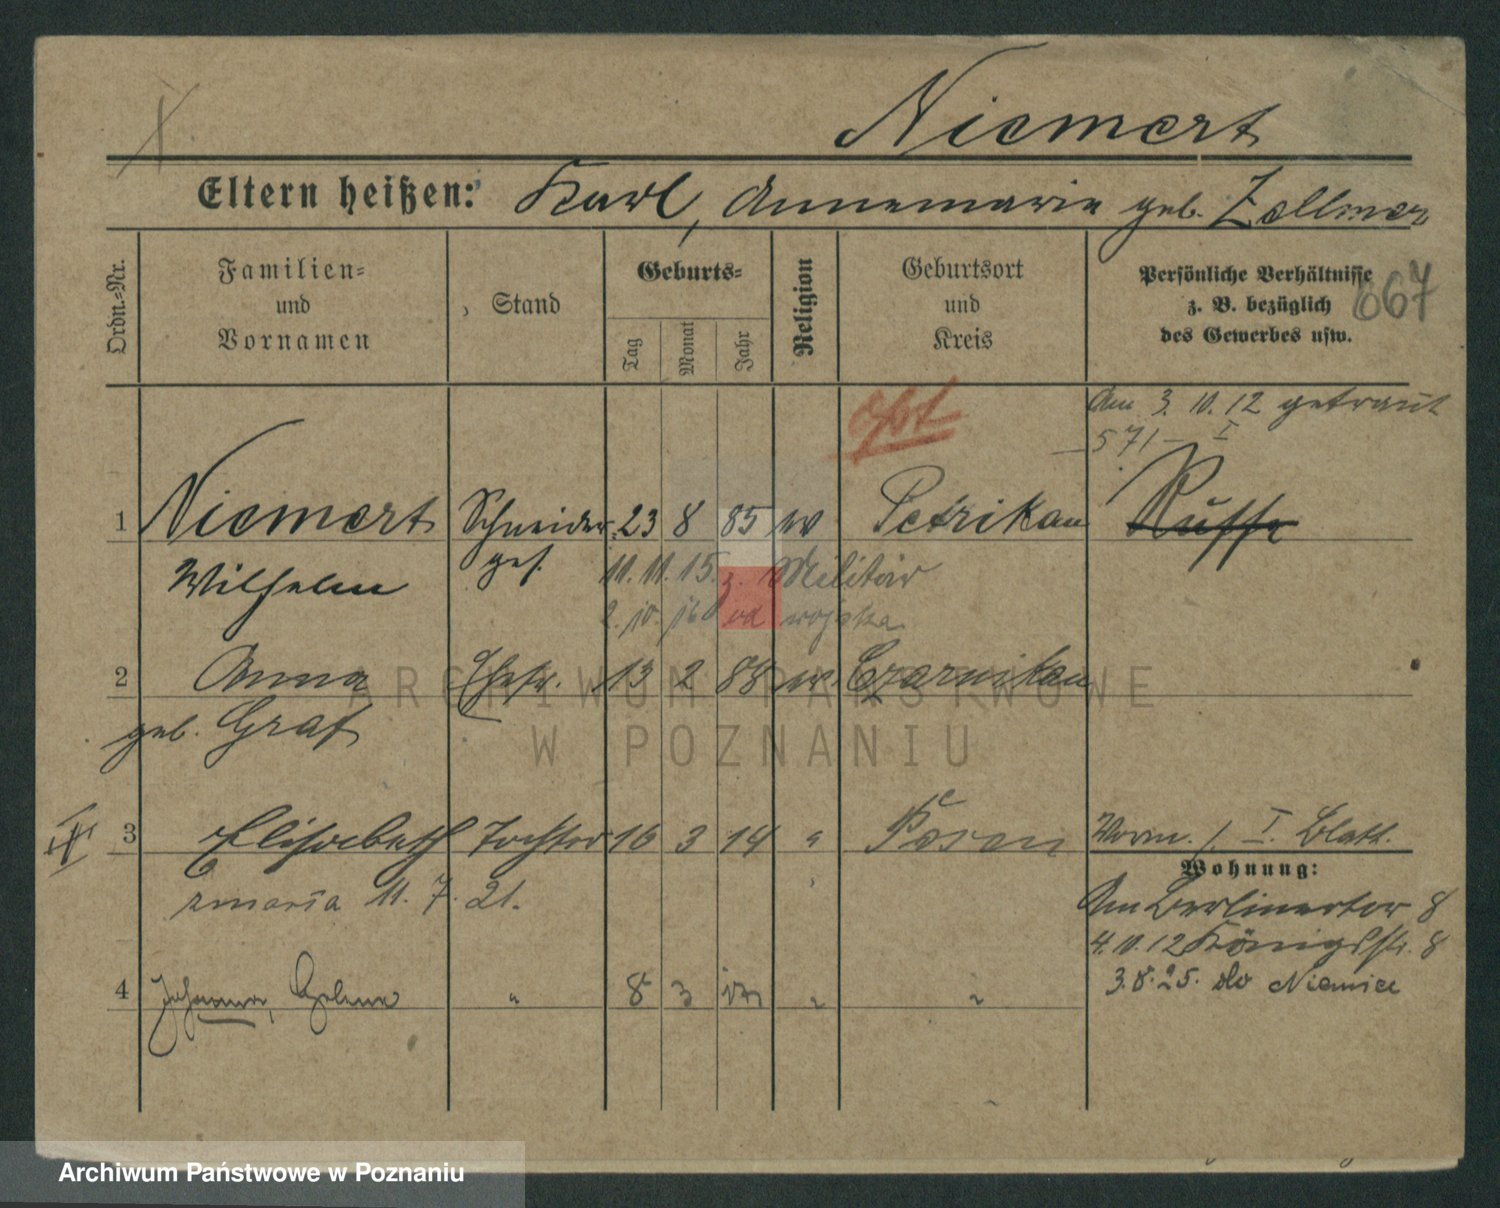 Niemert
Eltern heißen: Karl, Annemarie geb. Zellmer
Ordn.-Nr.
Familien-
und
Vornamen
Stand
Geburts-
Tag
Monat
Jahr
Religion
Geburtsort
und
Kreis
Persönliche Verhältnisse
z. B. bezüglich
des Gewerbes usw.
667
Am 3. 10. 12 getraut
571 - I
opt
1 Niemert Schneider 23 8 85 ev Petrikau Russe
Wilhelm ges. 11. 11. 15. z. Militär
2. 10. 16 od wojska
2 Anna Ehefr. 13 2 88 ev. Czarnikau
geb. Graf
3 Elisabeth Tochter 16 3 14 " Posen Vorm. I. Blatt.
Wohnung:
zmarła 11. 7. 21. Am Berlinertor 8
4. 10. 12 Königstr. 8
4 Johanna, " 8 3 " " 3. 8. 25. do Niemiec
ARCHIWUM PAŃSTWOWE
W POZNANIU
Archiwum Państwowe w Poznaniu